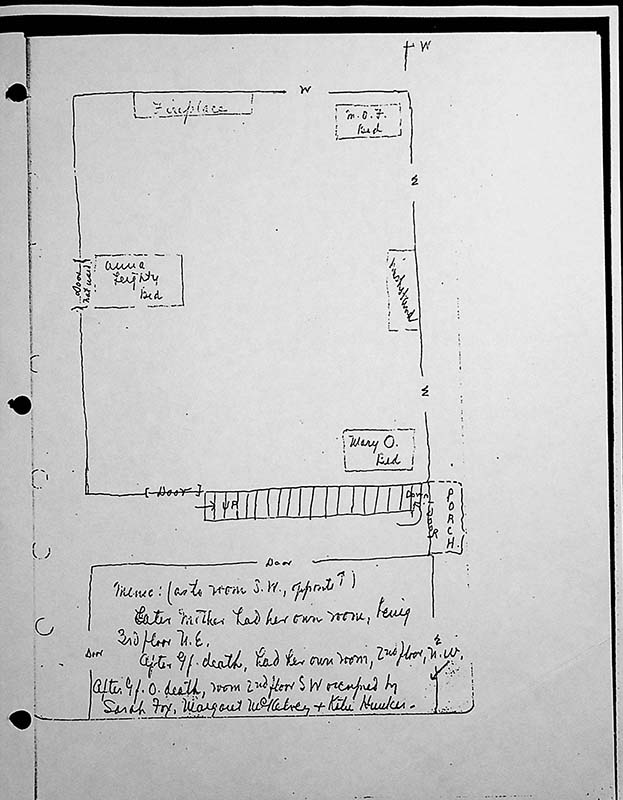 W
W
Fireplace
M.O.F.
Bed
Door
not used
Anna
Leighty
Bed
Washstand
Mary O.
Bed
Door
UP
Down
DOOR
PORCH
Door
Memo: (as to room S.W., opposite ↑)
Later Mother had her own room, being
3rd floor N.E.
Door
After Gf. death, had her own room, 2nd floor, N.W.
After Gf. O. death, room 2nd floor SW occupied by
Sarah Fox, Margaret McKelvey + Katie Hunker.